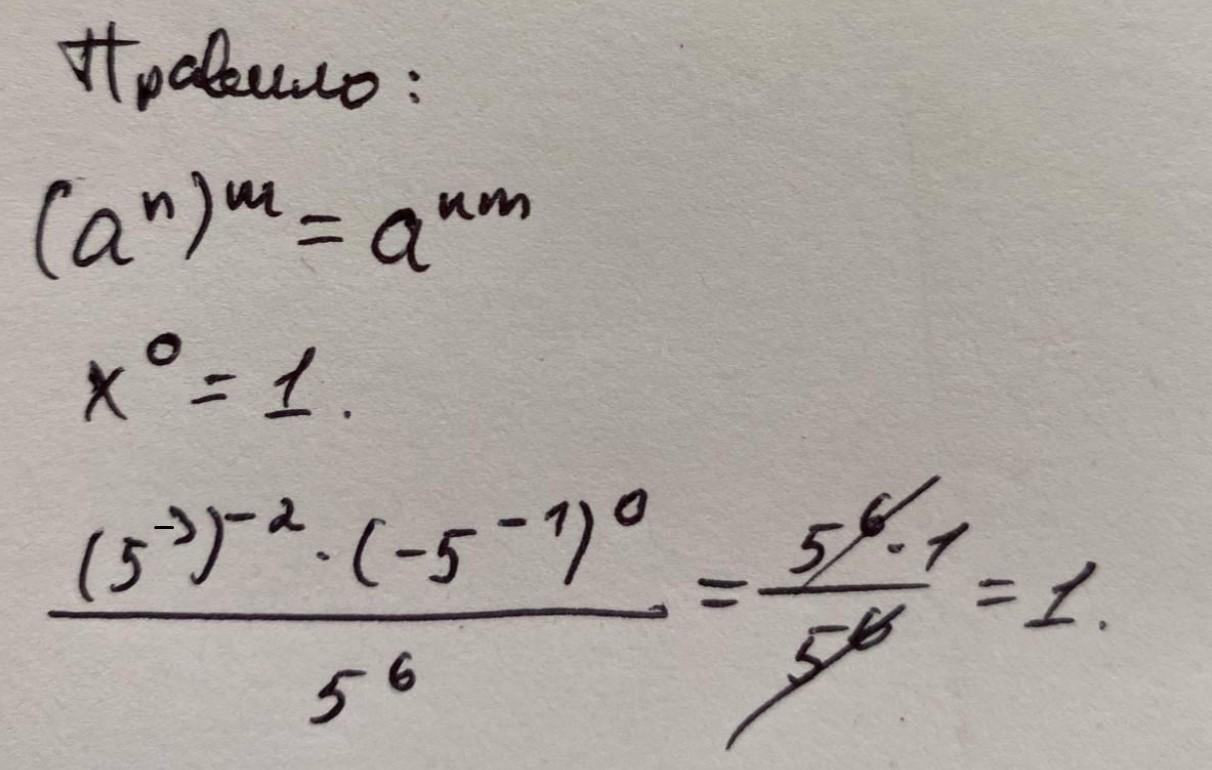 Правило:
(aⁿ)ᵐ = aⁿᵐ
x⁰ = 1.
(5⁻³)⁻² · (-5⁻¹)⁰ / 5⁶ = 5⁶ · 1 / 5⁶ = 1.